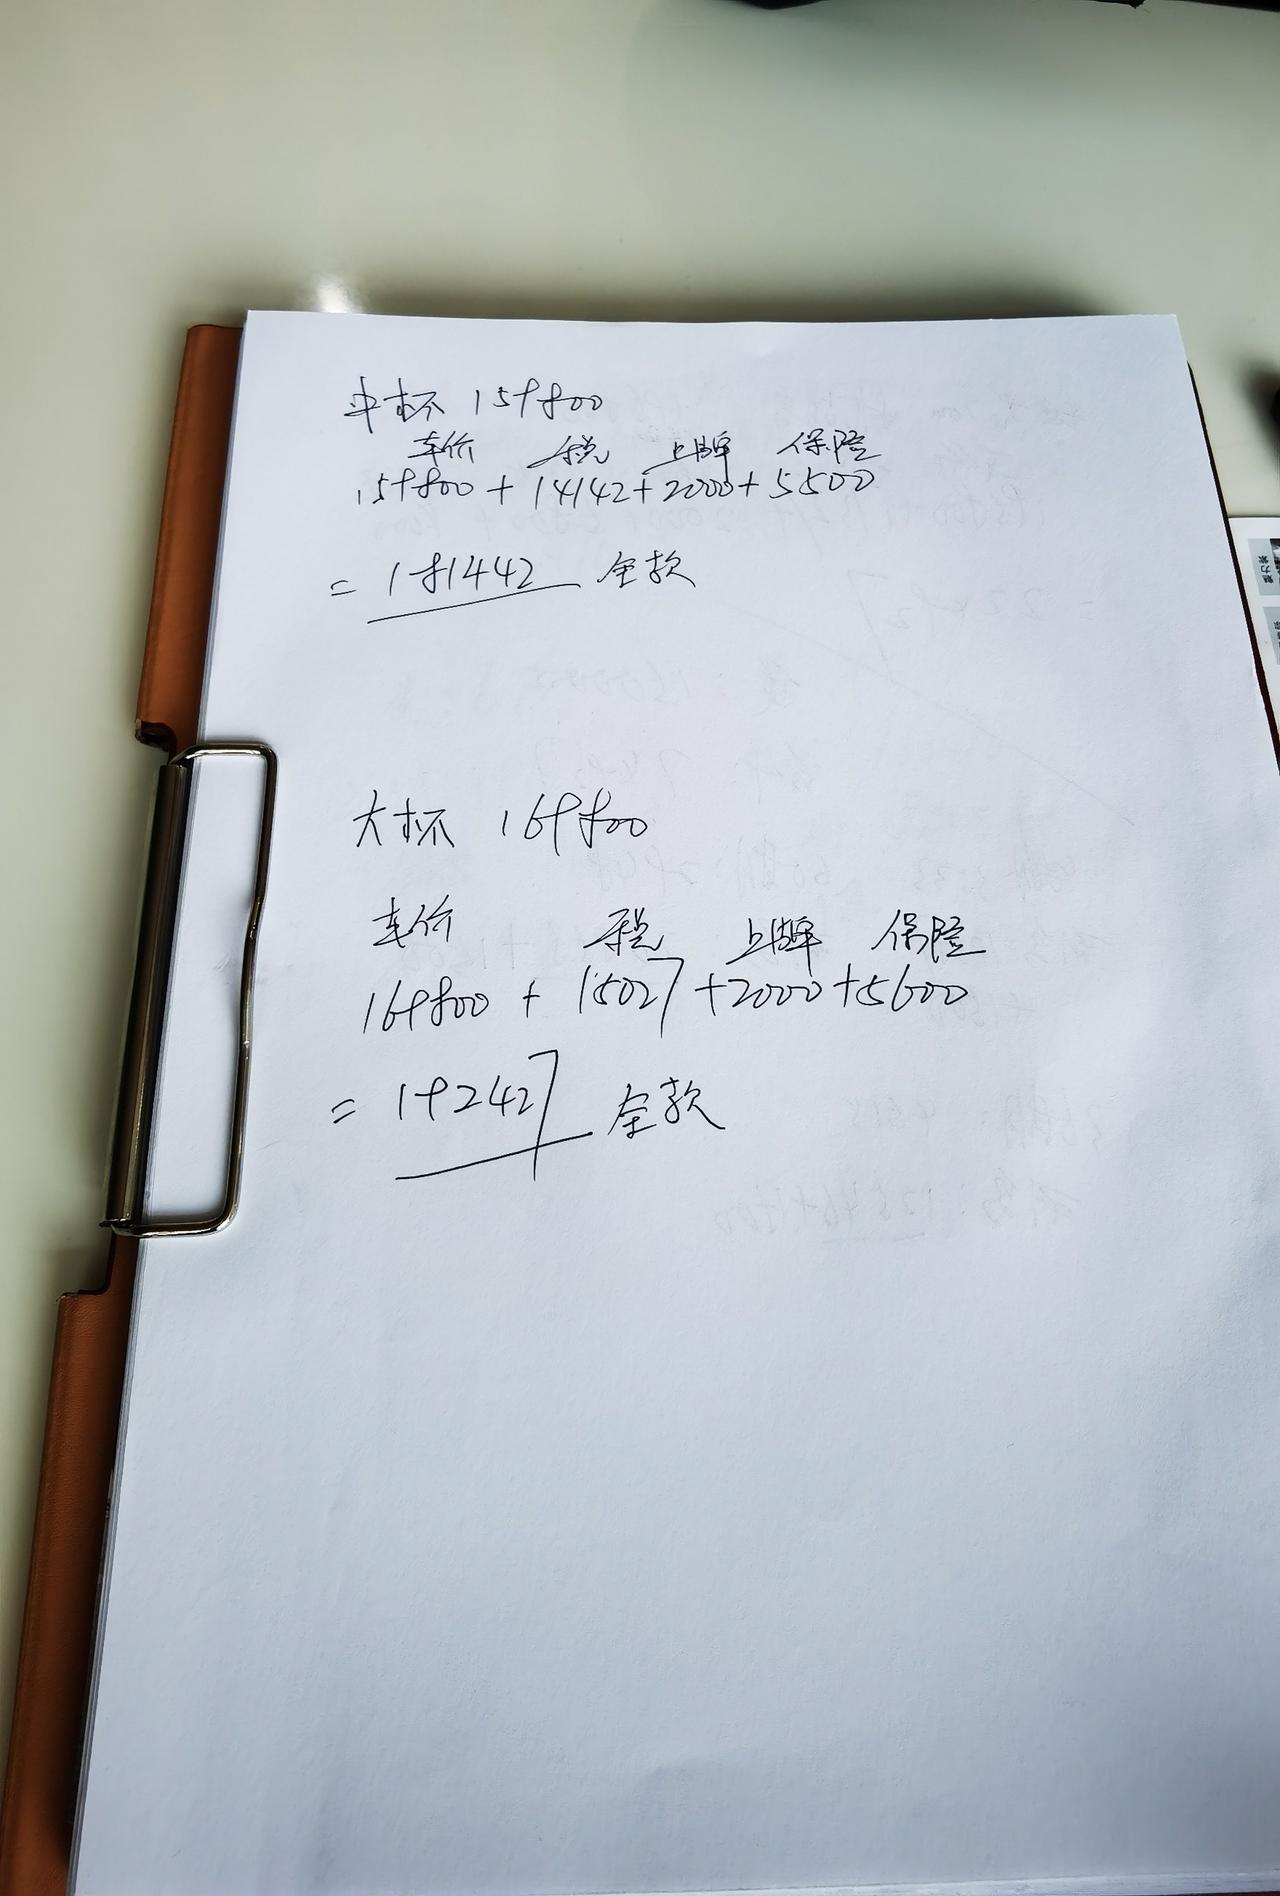 中杯 159800
车价 税 上牌 保险
159800 + 14142 + 2000 + 5500
= 181442 全款
大杯 169800
车价 税 上牌 保险
169800 + 15027 + 2000 + 5600
= 192427 全款